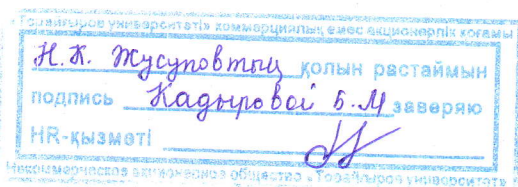 «Торайғыров университеті» коммерциялық емес акционерлік қоғамы
Н.К. Жусуповтың қолын растаймын
подпись Кадыровой Б.М заверяю
HR-қызметі
Некоммерческое акционерное общество «Торайғыров университет»